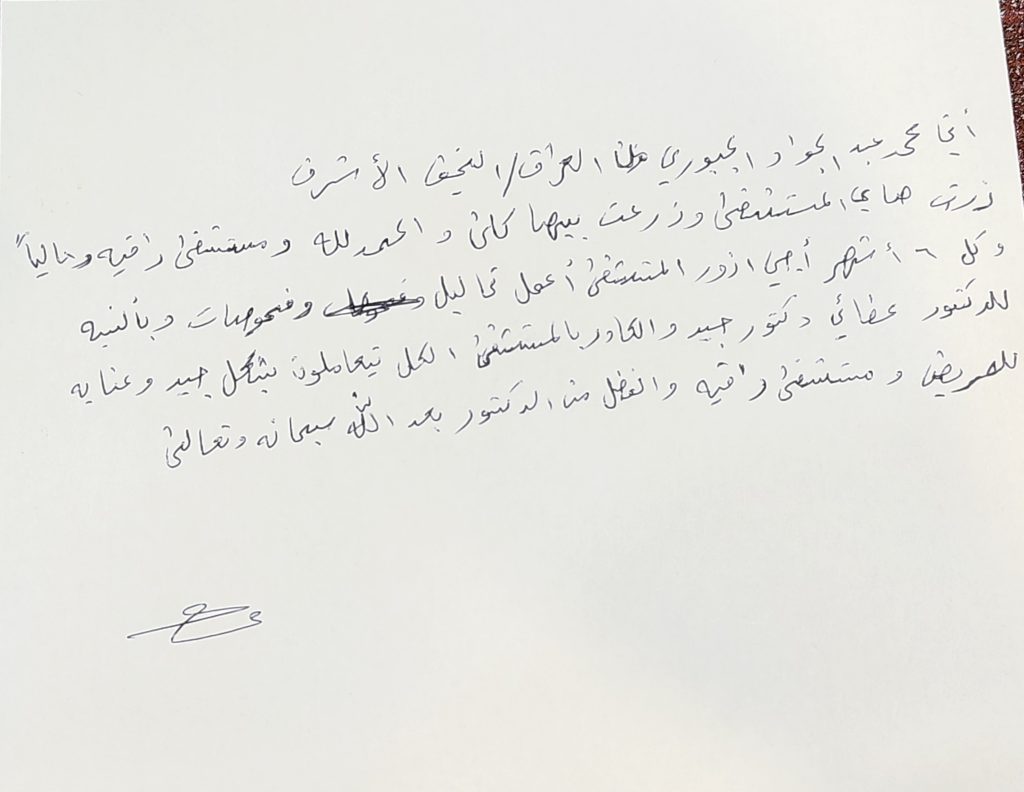 أنا محمد عبد الجواد الجبوري من العراق/النجف الأشرف
زرت هاي المستشفى وزرعت بيها كلى و الحمد لله ومستشفى راقيه وحالياً
وكل ٦ أشهر أجي ازور المستشفى أعمل تحاليل وفحوصات وبالنسبه
للدكتور عطائي دكتور جيد والكادر بالمستشفى الكل يتعاملون بشكل جيد وعنايه
للمريض و مستشفى راقيه والفضل من الدكتور بعد الله سبحانه وتعالى